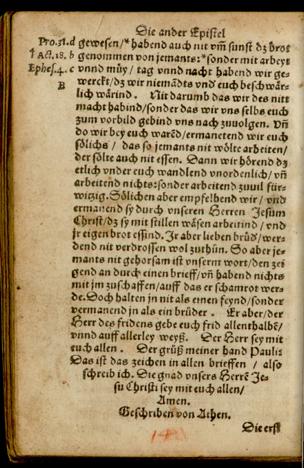 Die ander Epistel
Pro.31.d gewesen/*habend auch nit vm̄ sunst dz brot
†Act.18.b genommen von jemants:*sonder mit arbeyt
Ephes.4.c vnnd müy/ tag vnnd nacht habend wir ge-
werckt/dz wir niemāts vnd euch beschwär-
B lich wärind. Nit darumb das wir des nitt
macht habind/sonder das wir vns selbs euch
zum vorbild gebind vns nach zuuolgen. Vn̄
do wir bey euch warēd/ermanetend wir euch
sölichs/ das so jemants nit wölte arbeiten/
der sölte auch nit essen. Dann wir hörend dz
etlich vnder euch wandlend vnordenlich/ vn̄
arbeitend nichts:sonder arbeitend zuuil für-
witzig. Sölichen aber empfelhend wir/ vnd
ermanend sy durch vnseren Herren Jesum
Christ/dz sy mit stillen wäsen arbeitind/ vnd
jr eigen brot essind. Jr aber lieben brüd/wer-
dend nit verdrossen wol zuthün. So aber je-
mants nit gehorsam ist vnserm wort/den zei
gend an durch einen brieff/vn̄ habend nichts
mit jm zuschaffen/auff das er schamrot wer-
de. Doch halten jn nit als einen feynd/sonder
vermanend jn als ein brüder. Er aber/der
Herr des fridens gebe euch frid allenthalbē/
vnnd auff allerley weyß. Der Herr sey mit
euch allen. Der grüß meiner hand Pauli:
Das ist das zeichen in allen brieffen / also
schreib ich. Die gnad vnsers Herrē Je-
su Christi sey mit euch allen/
Amen.
Geschriben von Athen.
Die erst